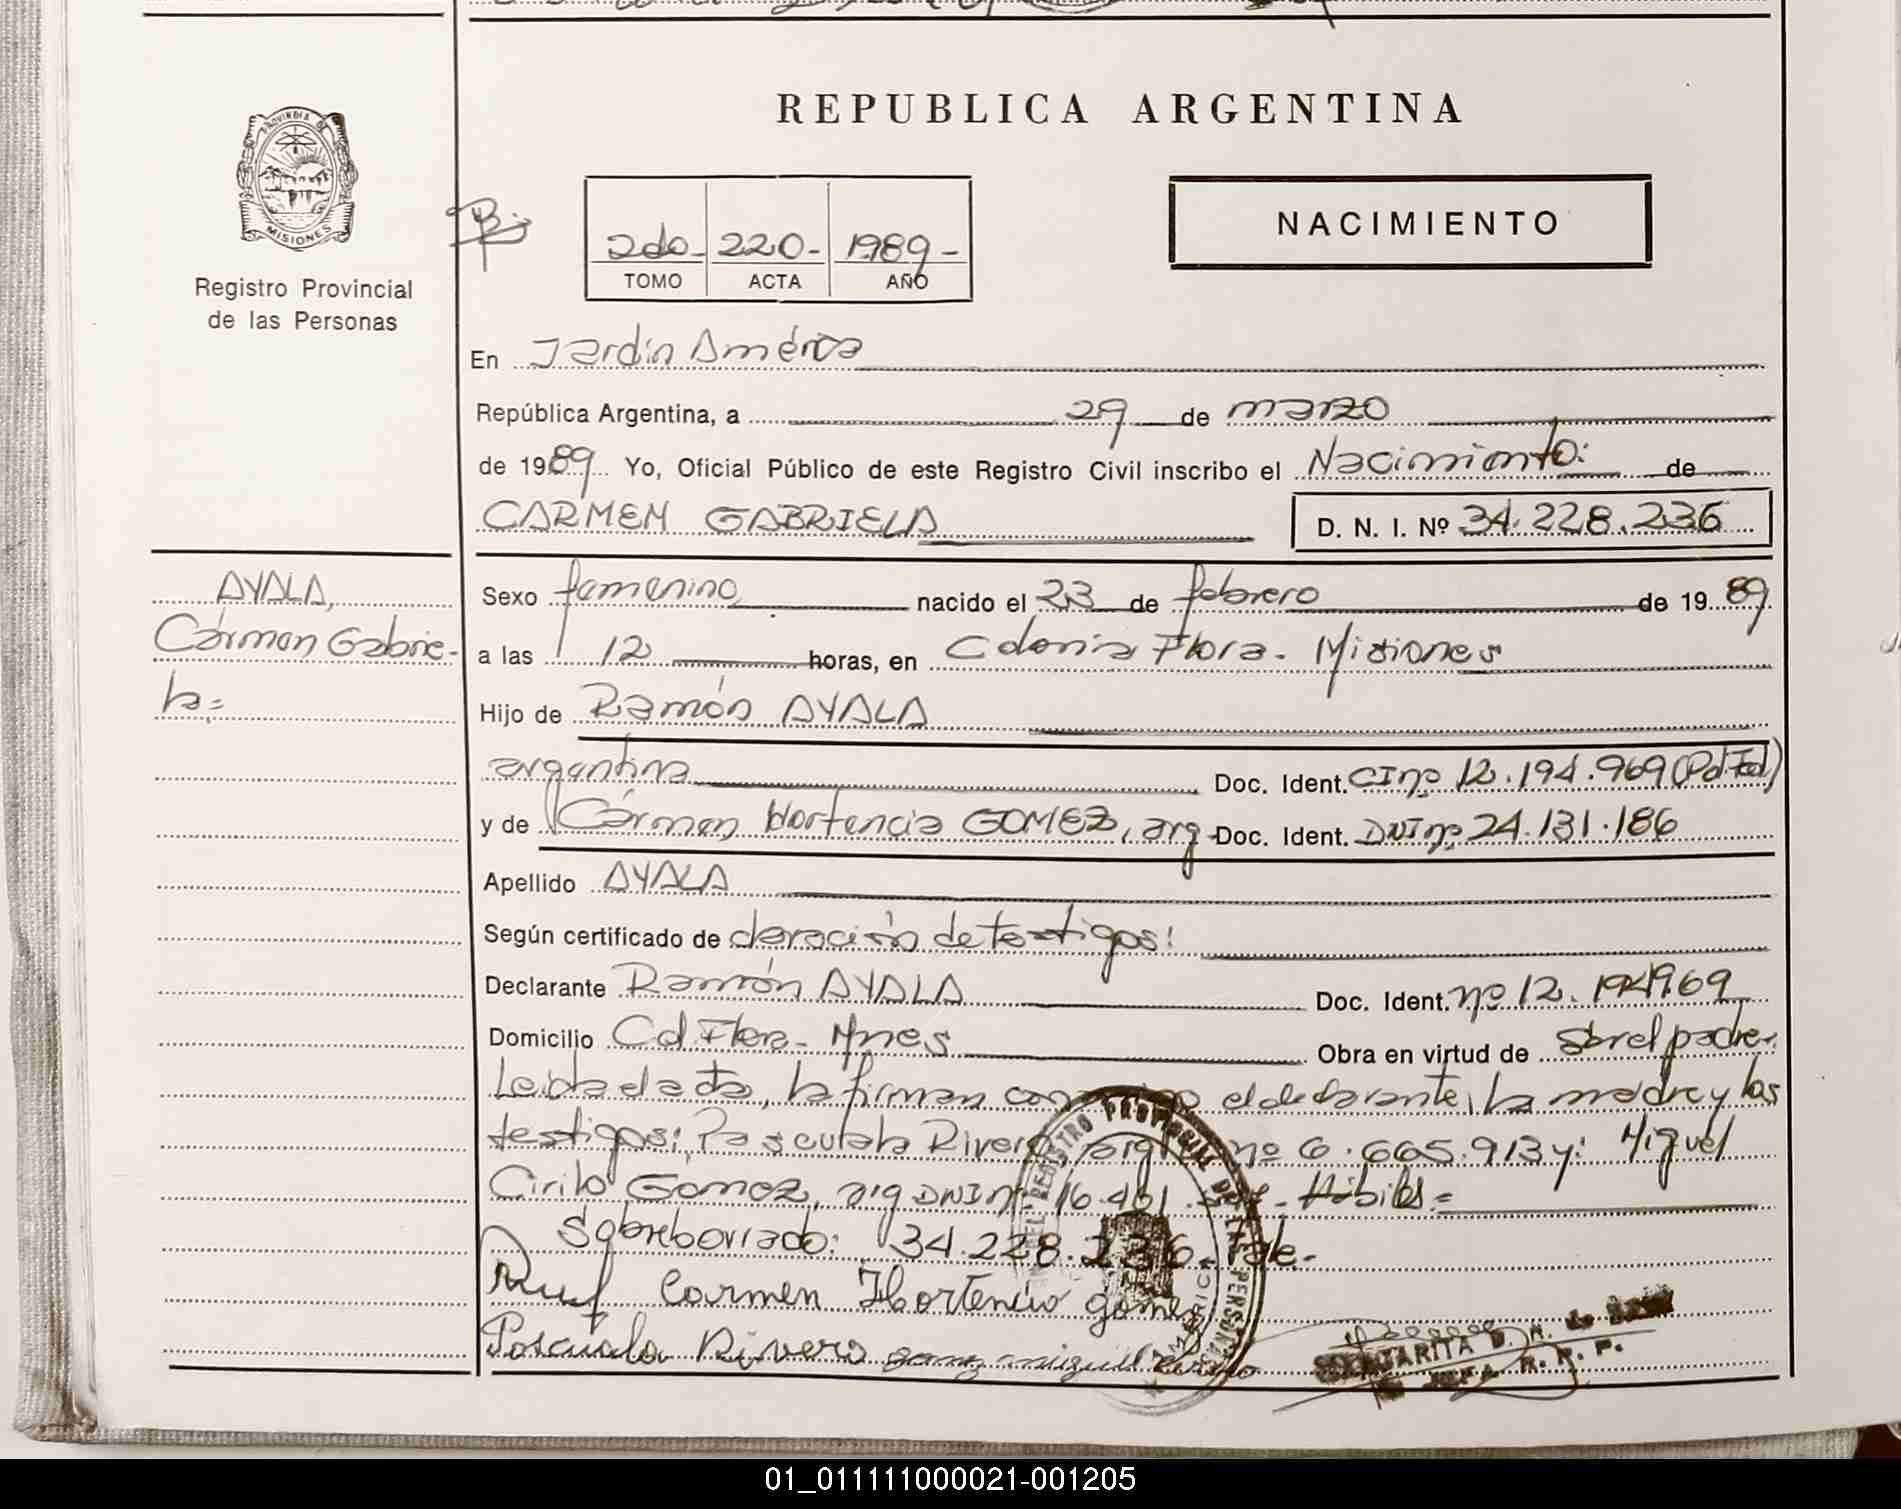 REPUBLICA ARGENTINA
PROVINCIA DE
MISIONES
Registro Provincial
de las Personas
2do- 220- 1989-
TOMO ACTA AÑO
NACIMIENTO
En Jardín América
República Argentina, a 29 de marzo
de 1989 Yo, Oficial Público de este Registro Civil inscribo el Nacimiento: de
CARMEN GABRIELA D. N. I. Nº 34.228.236
AYALA,
Cármen Gabrie-
la=
Sexo femenino nacido el 23 de febrero de 1989
a las 12 horas, en Colonia Flora. Misiones
Hijo de Ramón AYALA
argentina Doc. Ident. CI nº 12.194.969 (Pol Fed)
y de Cármen Hortencia GOMEZ, arg Doc. Ident. DNI nº 24.131.186
Apellido AYALA
Según certificado de de testigos:
Declarante Ramón AYALA Doc. Ident. nº 12.194969
Domicilio Col Flora- Mnes Obra en virtud de Ser el padre.
Leida el acta, la firman con el declarante, la madre y los
testigos: Pascuala Rivero, arg nº 6.665.913 y: Miguel
Cirilo Gómez, arg DNI nº 16.461. - Hábiles=
Sobreborrado: 34.228.236. Vale.-
Carmen Hortencio gomez
Pascuala Rivero gomez miguel cirilo
REGISTRO PROVINCIAL DE LAS PERSONAS
AMERICA
R. P. P.
01_011111000021-001205